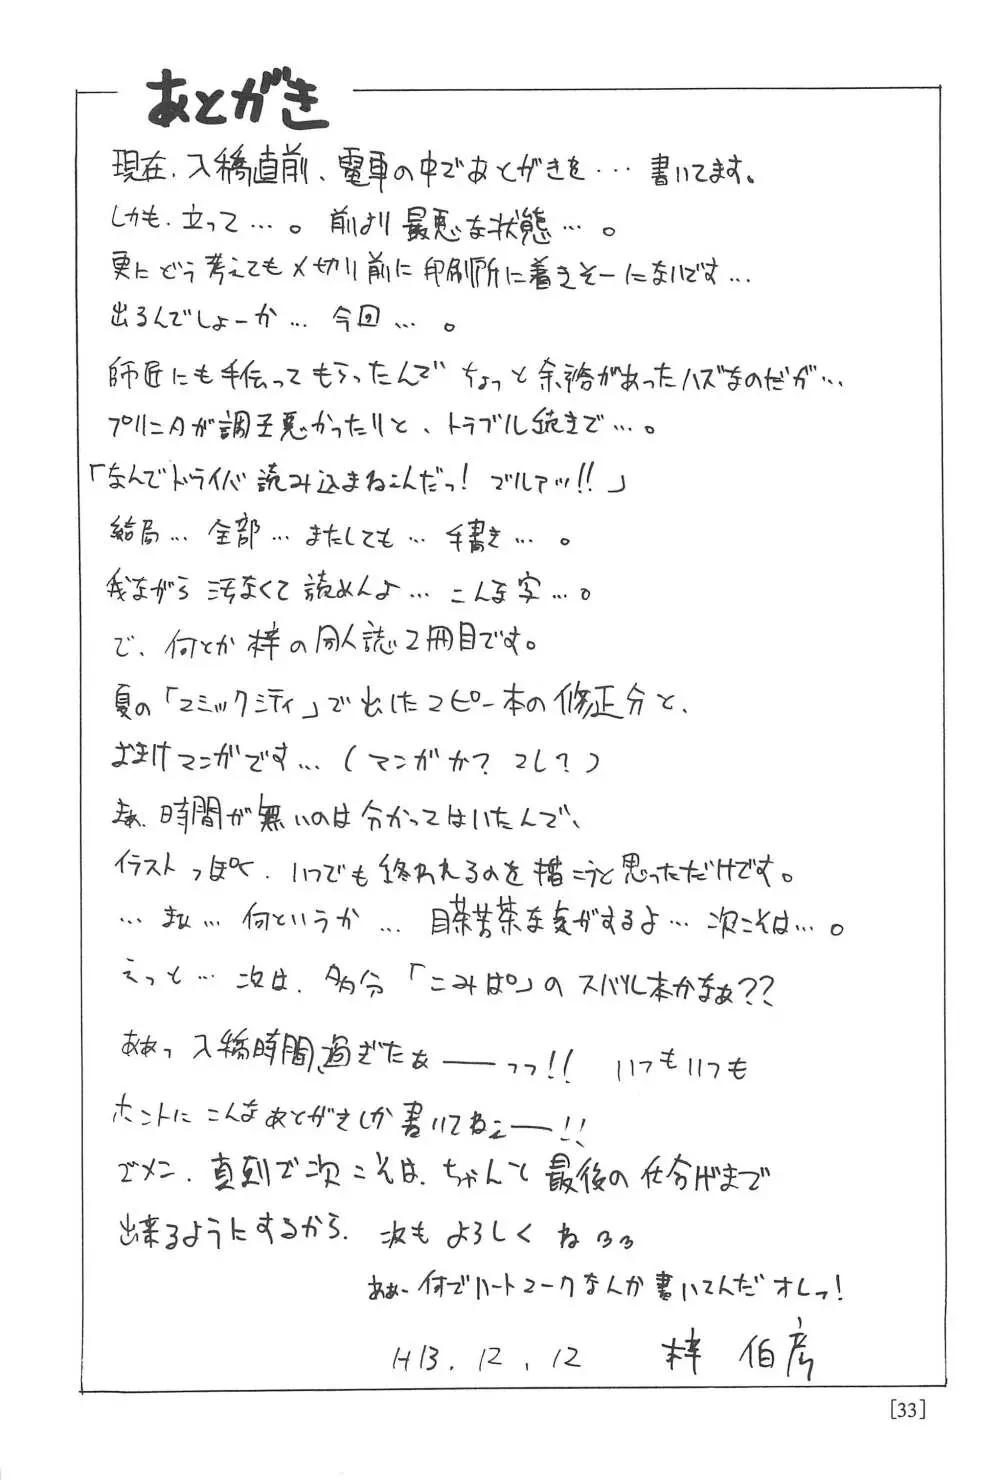 あとがき
現在、入稿直前、電車の中であとがきを・・・書いてます。
しかも、立って・・・。前より最悪な状態・・・。
更にどう考えても〆切り前に印刷所に着きそーにないです・・・
出るんでしょーか・・・今回・・・。
師匠にも手伝ってもらったんでちょっと余裕があったハズなのだが・・・
プリンタが調子悪かったりと、トラブル続きで・・・。
「なんでドライバ読み込まねこんだっ！ゴルァッ!!」
結局・・・全部・・・またしても・・・手書き・・・。
我ながら汚なくて読めんよ・・・こんな字・・・。
で、何とか梓の同人誌2冊目です。
夏の「コミックシティ」で出したコピー本の修正分と、
おまけマンガです・・・（マンガか？コレ？）
まぁ、時間が無いのは分かってはいたんで、
イラストっぽく、いつでも終われるのを描こうと思っただけです。
・・・まぁ・・・何というか・・・目茶苦茶な気がするよ・・・次こそは・・・。
えっと・・・次は、多分「こみぱ」のスバル本かなぁ??
ああっ入稿時間過ぎたぁ――っっ!!いつもいつも
ホントにこんなあとがきしか書いてねぇ――!!
ゴメン、真剣で次こそは、ちゃんと最後の仕上げまで
出来るようにするから、次もよろしくね♡♡
ああー何でハートマークなんか書いてんだオレっ！
H13.12.12 梓 伯彦
[33]